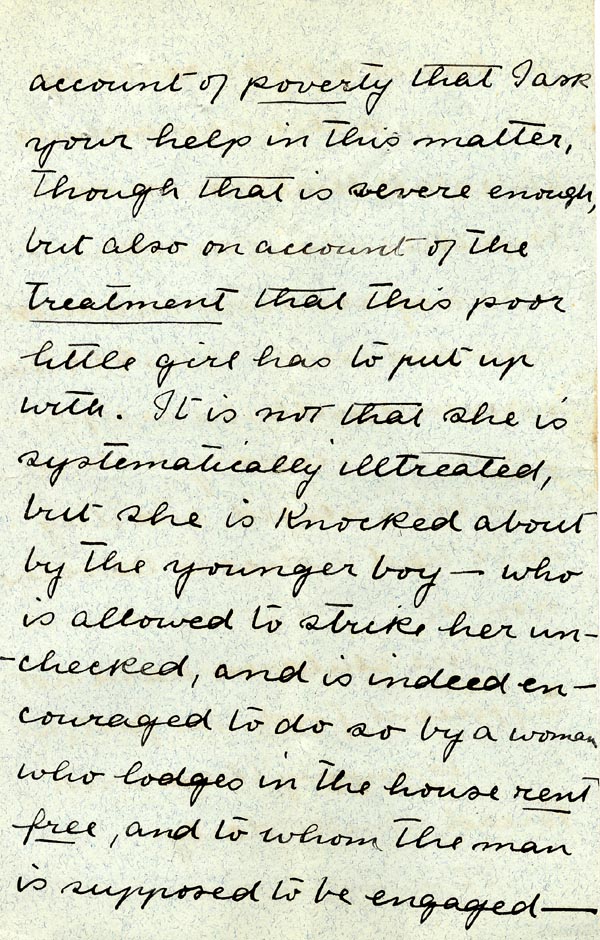 account of poverty that I ask
your help in this matter,
though that is severe enough,
but also on account of the
treatment that this poor
little girl has to put up
with. It is not that she is
systematically illtreated,
but she is Knocked about
by the younger boy — who
is allowed to strike her un-
-checked, and is indeed en-
couraged to do so by a woman
who lodges in the house rent
free, and to whom the man
is supposed to be engaged —